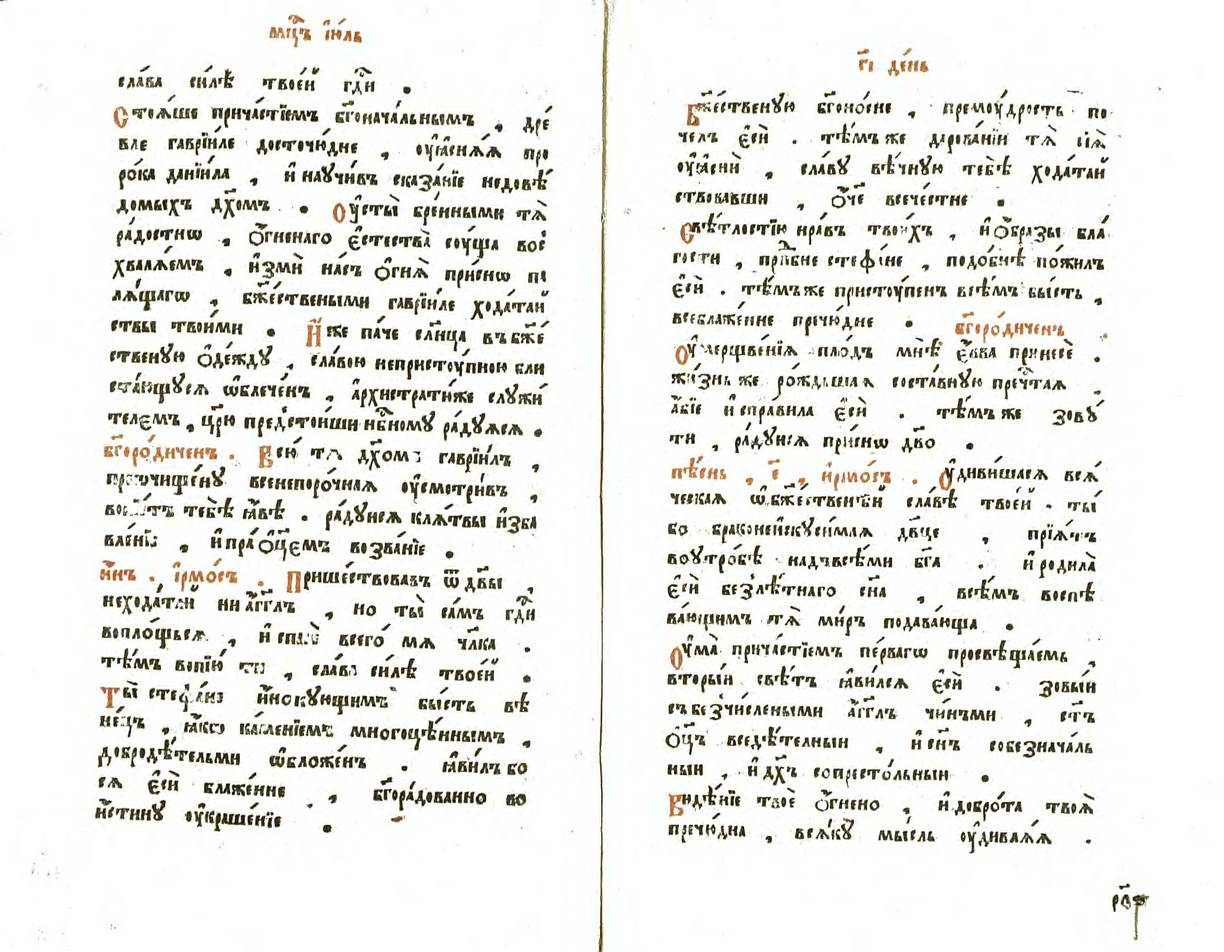 мцⷭ҇ъ і҆ю́ль
сла́ва си́лѣ твое́й гдⷭ҇и .
Стоѧ́ше прича́стїемъ бг҃онача́льнымъ , дре́
вле гаврїи́ле досточю́дне , ᲂу҆ꙗ҆снѧ́ѧ про
ро́ка данїи́ла , и҆ научи́въ сказа́нїе недовѣ́
домыхъ дх҃омъ . Оу҆сты̀ бре́нными тѧ̀
ра́достнѡ , ѻ҆́гненаго є҆стества̀ сᲂу́ща вос
хвалѧ́емъ , и҆змѝ на́съ ѻ҆гнѧ̀ при́снѡ па
лѧ́щагѡ , бж҃е́ствеными гаврїи́ле хода́тай
ствы твои́ми . И҆́же па́че слн҃ца въ бж҃е́
ственую ѻ҆де́жду , сла́вою непристꙋ́пною бли
ста́ющуюсѧ ѡ҆блече́нъ , а҆рхистрати́же служи́
телемъ , цр҃ю предстоѧ́ши нбⷭ҇ному ра́дуйсѧ .
бг҃оро́диченъ . Всю́ тѧ дх҃омъ гаврїи́лъ ,
преѡчище́ну всенепоро́чнаѧ ᲂу҆смотри́въ ,
вопїе́тъ тебѣ̀ ꙗ҆́вѣ . ра́дуисѧ клѧ́твы и҆зба
вле́нїе , и҆ пра́ѻтцемъ возва́нїе .
и҆́нъ . і҆рмо́съ . Прише́ствовавъ ѿ дв҃ы ,
не хода́тай ни а҆́гг҃лъ , но ты̀ са́мъ гдⷭ҇и
воплѡ́щьсѧ , и҆ спасѐ всего́ мѧ чл҃ка .
тѣ́мъ вопїю́ ти , сла́ва си́лѣ твое́й .
Ты̀ стефа́не и҆нокующимъ бы́сть вѣ
не́цъ , ꙗ҆́кѡ ка́менїемъ многоцѣ́ннымъ ,
добродѣ́тельми ѡ҆бложе́нъ . ꙗ҆ви́лъ бо
сѧ є҆сѝ блаже́нне , бг҃ора́дованно во
и҆́стину ᲂу҆краше́нїе .
г҃і де́нь
Бж҃е́ственую бг҃оно́сне , премᲂу́дрость по
че́лъ є҆сѝ . тѣ́мъ же дарова́нїи тѧ̀ сїѧ̀
ᲂу҆ꙗ҆снѝ , сла́вꙋ вѣ́чную тебѣ̀ хода́тай
ствовавши , ѻ҆́ч҃е всече́стне .
Свѣ́тлостїю нра́въ твои́хъ , и҆ ѻ҆́бразы бла́
гости , прпⷣбне стефа́не , подо́бнѣ пожи́лъ
є҆сѝ . тѣ́мъ же пристꙋ́пенъ всѣ́мъ бы́сть ,
всеблаже́нне пречю́дне . бг҃оро́диченъ
Оу҆мерщве́нїѧ пло́дъ мнѣ̀ є҆́вва принесѐ .
жи́знь же ро́ждьшаѧ соста́вную пречⷭ҇таѧ ,
а҆́бїе и҆спра́вила є҆сѝ . тѣ́мъ же зову́
ти , ра́дуисѧ при́снѡ дв҃о .
пѣ́снь , е҃ , и҆рмо́съ . Оудиви́шасѧ всѧ́
ческаѧ ѡ҆ бж҃е́ственѣй сла́вѣ твое́й . ты́
бо браконеискусимлѧ дв҃це , прїѧ́тъ
во ᲂу҆тро́бѣ надъ всѣ́ми бг҃а . и҆ родила
є҆сѝ безлѣ́тнаго сн҃а , всѣ́мъ воспѣ
ва́ющимъ тѧ̀ ми́ръ подава́юща .
Оу҆ма̀ прича́стїемъ пе́рвагѡ просвѣща́емь ,
вторы́й свѣ́тъ ꙗ҆ви́лсѧ є҆сѝ . зовы́й
съ безчи́слеными а҆́гг҃лъ чи́нъми , ст҃ъ
ѻ҆ц҃ъ вседѣ́телныи , и҆ сн҃ъ собезнача́ль
ныи , и҆ дх҃ъ сопресто́льныи .
Видѣ́нїе твоѐ ѻ҆́гнено , и҆ добро́та твоѧ̀
пречю́дна , всѧ́кꙋ мы́сль ᲂу҆дивлѧ́ѧ .